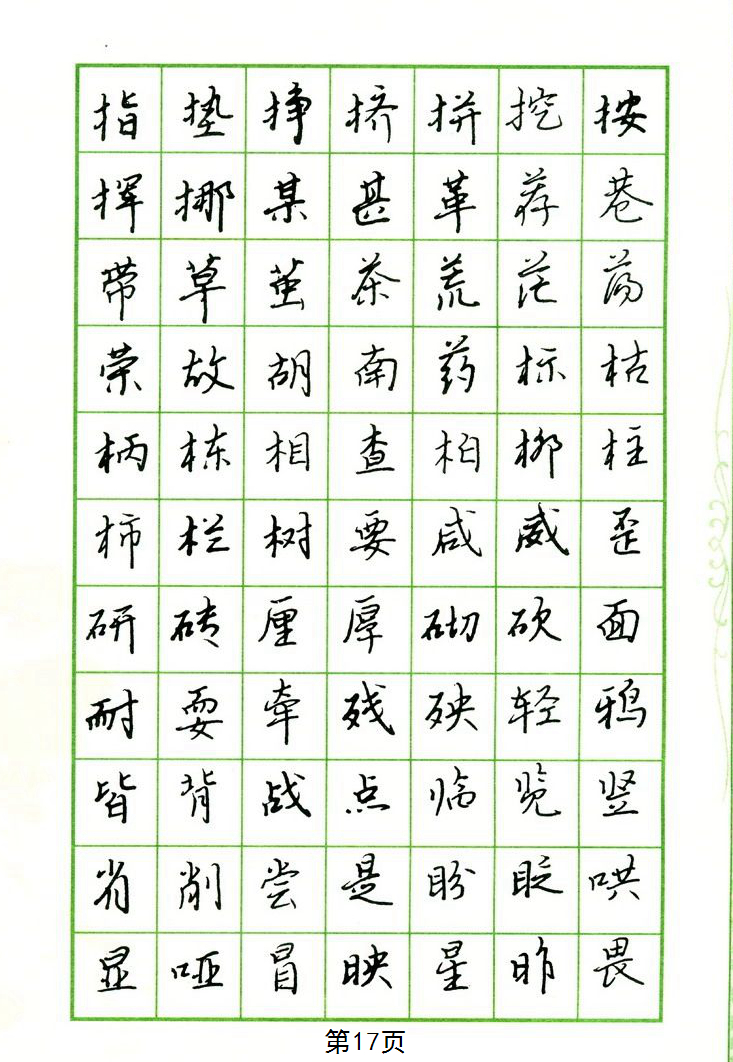 指垫挣挤拼挖按
挥挪某甚革荐巷
带草茧茶荒茫荡
荣故胡南药标枯
柄栋相查柏柳柱
柿栏树要咸威歪
研砖厘厚砌砍面
耐耍牵残殃轻鸦
皆背战点临览竖
省削尝是盼眨哄
显哑冒映星昨畏
第17页